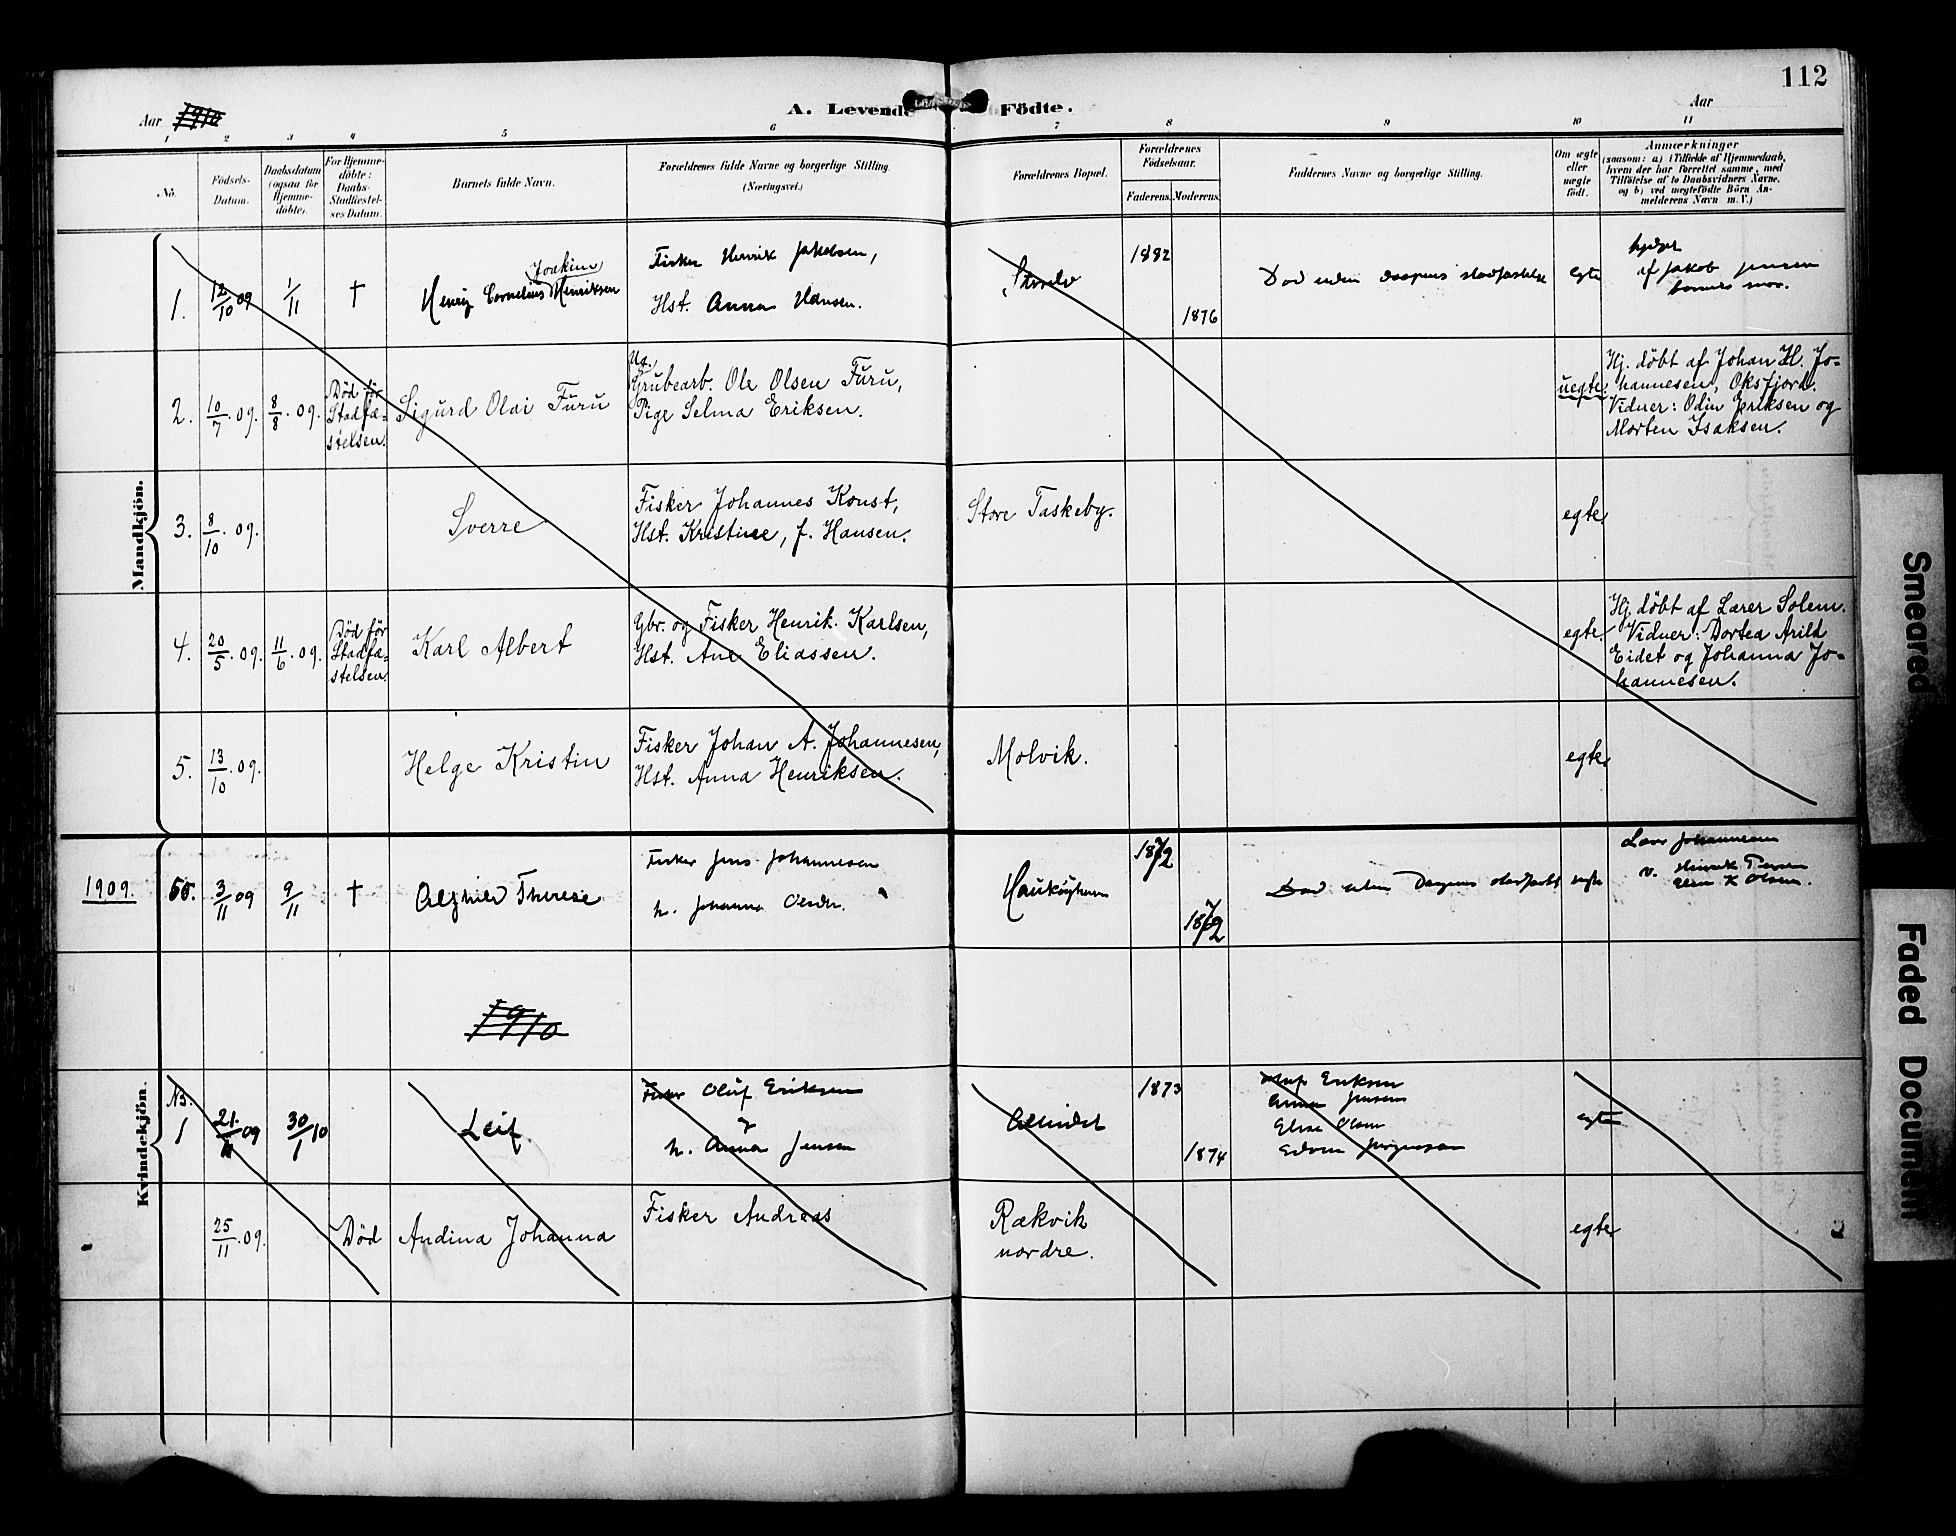 112
Aar 1910
A. Levende Födte.
Aar
1 2 3 4 5 6 7 8 9 10 11
No.
Födsels-
Datum.
Daabsdatum
(ogsaa for
Hjemme-
döbte).
For Hjemme-
döbte:
Daabs-
Stadfæstel-
ses Datum.
Barnets fulde Navn.
Forældrenes fulde Navne og borgerlige Stilling.
(Næringsvei.)
Forældrenes Bopæl.
Forældrenes
Födselsaar.
Faderens. Moderens.
Faddernes Navne og borgerlige Stilling.
Om ægte
eller
uægte
födt.
Anmærkninger
(saasom: a) i Tilfælde af Hjemmedaab,
hvem der har forrettet samme, med
Tilföielse af to Daabsvidners Navne,
og b) ved uægtefödte Börn An-
melderens Navn m. V.)
Mandkjön.
1. 12/10 09 1/11 † Henrij Cornelius Joakim Henriksen
Fisker Henrik Jakobsen,
Hst. Anna Hansen.
1882
1876
Död uden daapens stadfæstelse
egte
af Jakob Jensen
2. 10/7 .09. 8/8 .09.
Död før
Stadfæ-
stelsen.
Sigurd Olai Furu
Ug.
Grubearb. Ole Olsen Furu,
Pige Selma Eriksen.
uegte
Hj. døbt af Johan H. Jo-
hannesen, Oksfjord.
Vidner: Odin Eriksen og
Morten Isaksen.
3. 8/10 .09.
Sverre
Fisker Johannes Konst,
Hst. Kristine, f. Hansen.
Store Taskeby.
egte
4. 20/5 .09. 11/6 .09.
Död før
Stadfæ-
stelsen.
Karl Albert
Gbr. og Fisker Henrik Karlsen,
Hst. Ane Eliassen.
egte
Hj. døbt af Lærer Solem.
Vidner: Dortea Arild
Eidet og Johanna Jo-
hannesen.
5. 13/10 .09.
Helge Kristin
Fisker Johan A. Johannesen,
Hst. Anna Henriksen.
Molvik.
egte
Kvindekjön.
1909. 55. 3/11 09 9/11 † Therese
Fisker Jens Johannesen
h. Johanna Olsen.
1872
1872
egte
Johannesen
1910
No.
1 21/11 09 30/1 10
Leif
Fisker Oluf Eriksen
h. Anna Jensen
1873
1874
Oluf Eriksen
Anna Jensen
Elise Olsen
Edvin Jørgensen
egte
25/11 .09. Död Andina Johanna
Fisker Andreas
Rækvik
nordre.
egte
Smeared
Faded Document